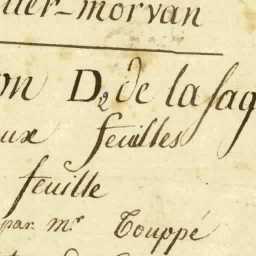 -morvan
on D2 de la sag
ux feuilles
feuille
par mr Touppé